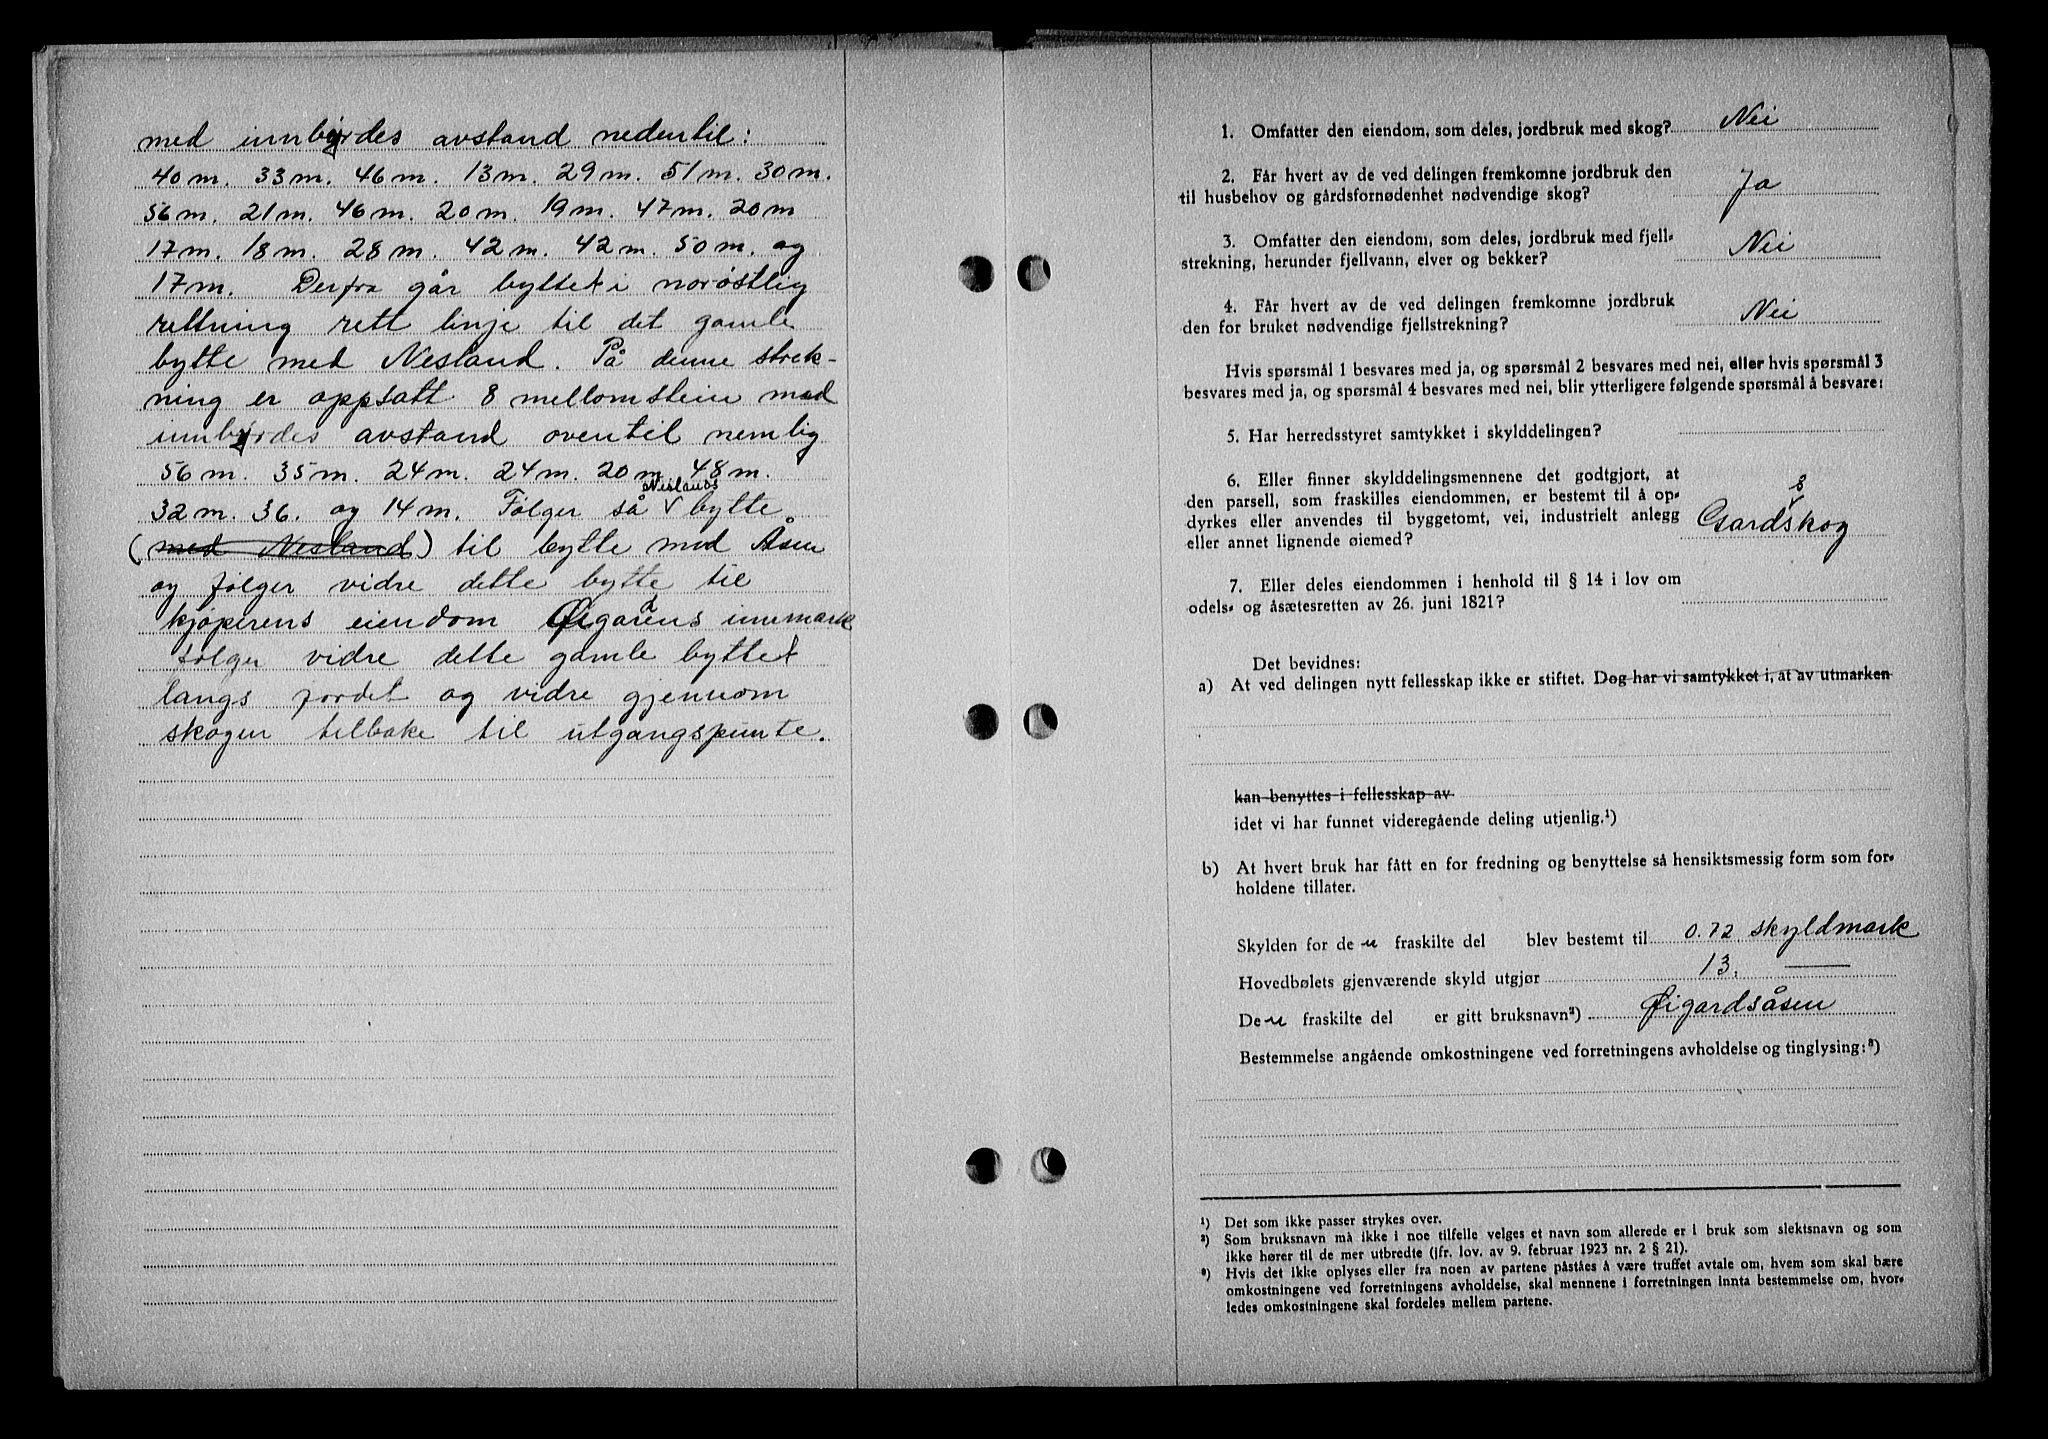 med innbyrdes avstand nedentil:
40 m. 33 m. 46 m. 13 m. 29 m. 51 m. 30 m.
56 m. 21 m. 46 m. 20 m. 19 m. 47 m. 20 m
17 m. 18 m. 28 m. 42 m. 42 m. 50 m. og
17 m. Derfra går byttet i norøstlig
rettning rett linje til det gamle
bytte med Nesland. På denne strek-
ning er oppsatt 8 mellomstein med
innbyrdes avstand oventil nemlig
56 m. 35 m. 24 m. 24 m. 20 m 48 m.
32 m. 36. og 14 m. Følger så Neslands bytte
(med Nesland) til bytte med Åsen
og følger vidre dette bytte til
kjøperens eiendom Øigardens innmark
følger vidre dette gamle byttet
langs jordet og vidre gjennom
skogen tilbake til utgangspunte.
1. Omfatter den eiendom, som deles, jordbruk med skog? Nei
2. Får hvert av de ved delingen fremkomne jordbruk den
til husbehov og gårdsfornødenhet nødvendige skog? Ja
3. Omfatter den eiendom, som deles, jordbruk med fjell-
strekning, herunder fjellvann, elver og bekker? Nei
4. Får hvert av de ved delingen fremkomne jordbruk
den for bruket nødvendige fjellstrekning? Nei
Hvis spørsmål 1 besvares med ja, og spørsmål 2 besvares med nei, eller hvis spørsmål 3
besvares med ja, og spørsmål 4 besvares med nei, blir ytterligere følgende spørsmål å besvare:
5. Har herredsstyret samtykket i skylddelingen?
6. Eller finner skylddelingsmennene det godtgjort, at
den parsell, som fraskilles eiendommen, er bestemt til å op-
dyrkes eller anvendes til byggetomt, vei, industrielt anlegg
eller annet lignende øiemed? Gardsskog
7. Eller deles eiendommen i henhold til § 14 i lov om
odels- og åsætesretten av 26. juni 1821?
Det bevidnes:
a) At ved delingen nytt fellesskap ikke er stiftet. Dog har vi samtykket i, at av utmarken
kan benyttes i fellesskap av
idet vi har funnet videregående deling utjenlig.¹)
b) At hvert bruk har fått en for fredning og benyttelse så hensiktsmessig form som for-
holdene tillater.
Skylden for de n fraskilte del blev bestemt til 0.72 skyldmark
Hovedbølets gjenværende skyld utgjør 13. —
De n fraskilte del er gitt bruksnavn²) Øigardsåsen
Bestemmelse angående omkostningene ved forretningens avholdelse og tinglysing:³)
¹) Det som ikke passer strykes over.
²) Som bruksnavn må ikke i noe tilfelle velges et navn som allerede er i bruk som slektsnavn og som
ikke hører til de mer utbredte (jfr. lov. av 9. februar 1923 nr. 2 § 21).
³) Hvis det ikke oplyses eller fra noen av partene påståes å være truffet avtale om, hvem som skal bære
omkostningene ved forretningens avholdelse, skal mennene i forretningen innta bestemmelse om, hvor-
ledes omkostningene skal fordeles mellem partene.